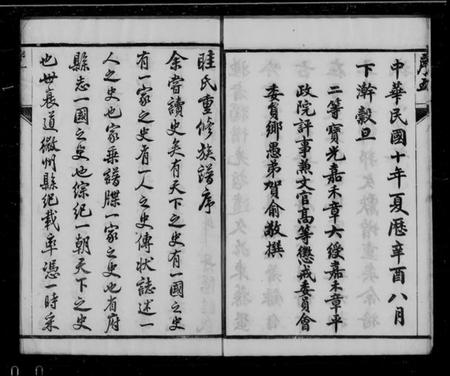 中華民國十年夏曆辛酉八月
下澣穀旦
二等寶光嘉禾章大綬嘉禾章平
政院評事兼文官高等懲戒委員會
委員鄉愚弟賀俞敬撰
眭氏重修族譜序
余嘗讀史矣有天下之史有一國之史
有一家之史有一人之史傳狀誌述一
人之史也家乘譜牒一家之史也省府
縣志一國之史也綜紀一朝天下之史
也世衰道微州縣紀載率憑一時采